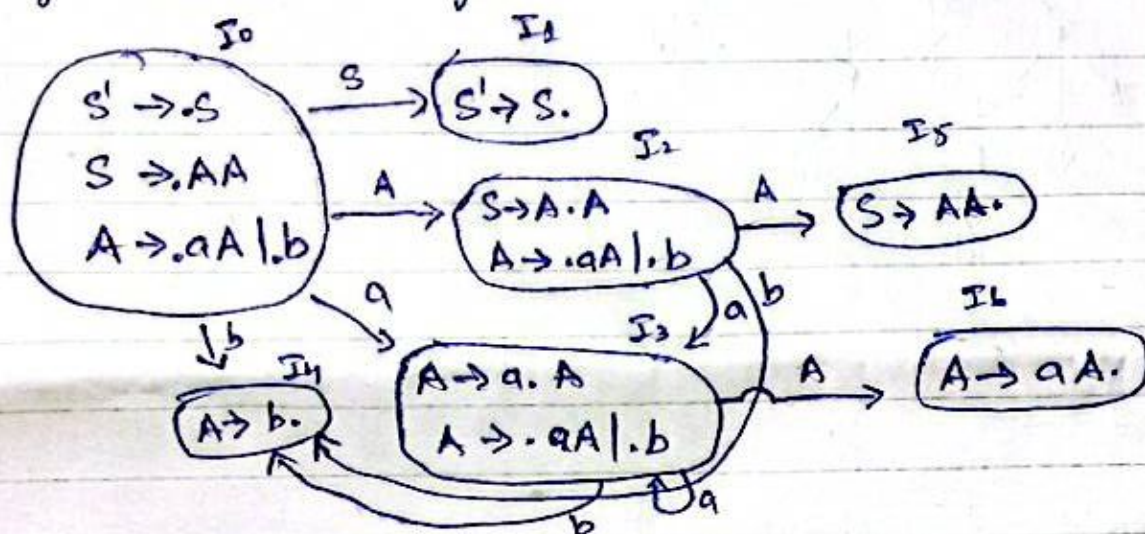 I0
S' → .S
S → .AA
A → .aA | .b
S
I1
S' → S.
A
I2
S → A.A
A → .aA | .b
A
I5
S → AA.
a
b
a
b
I3
A → a.A
A → .aA | .b
A
I6
A → aA.
I4
A → b.
a
b